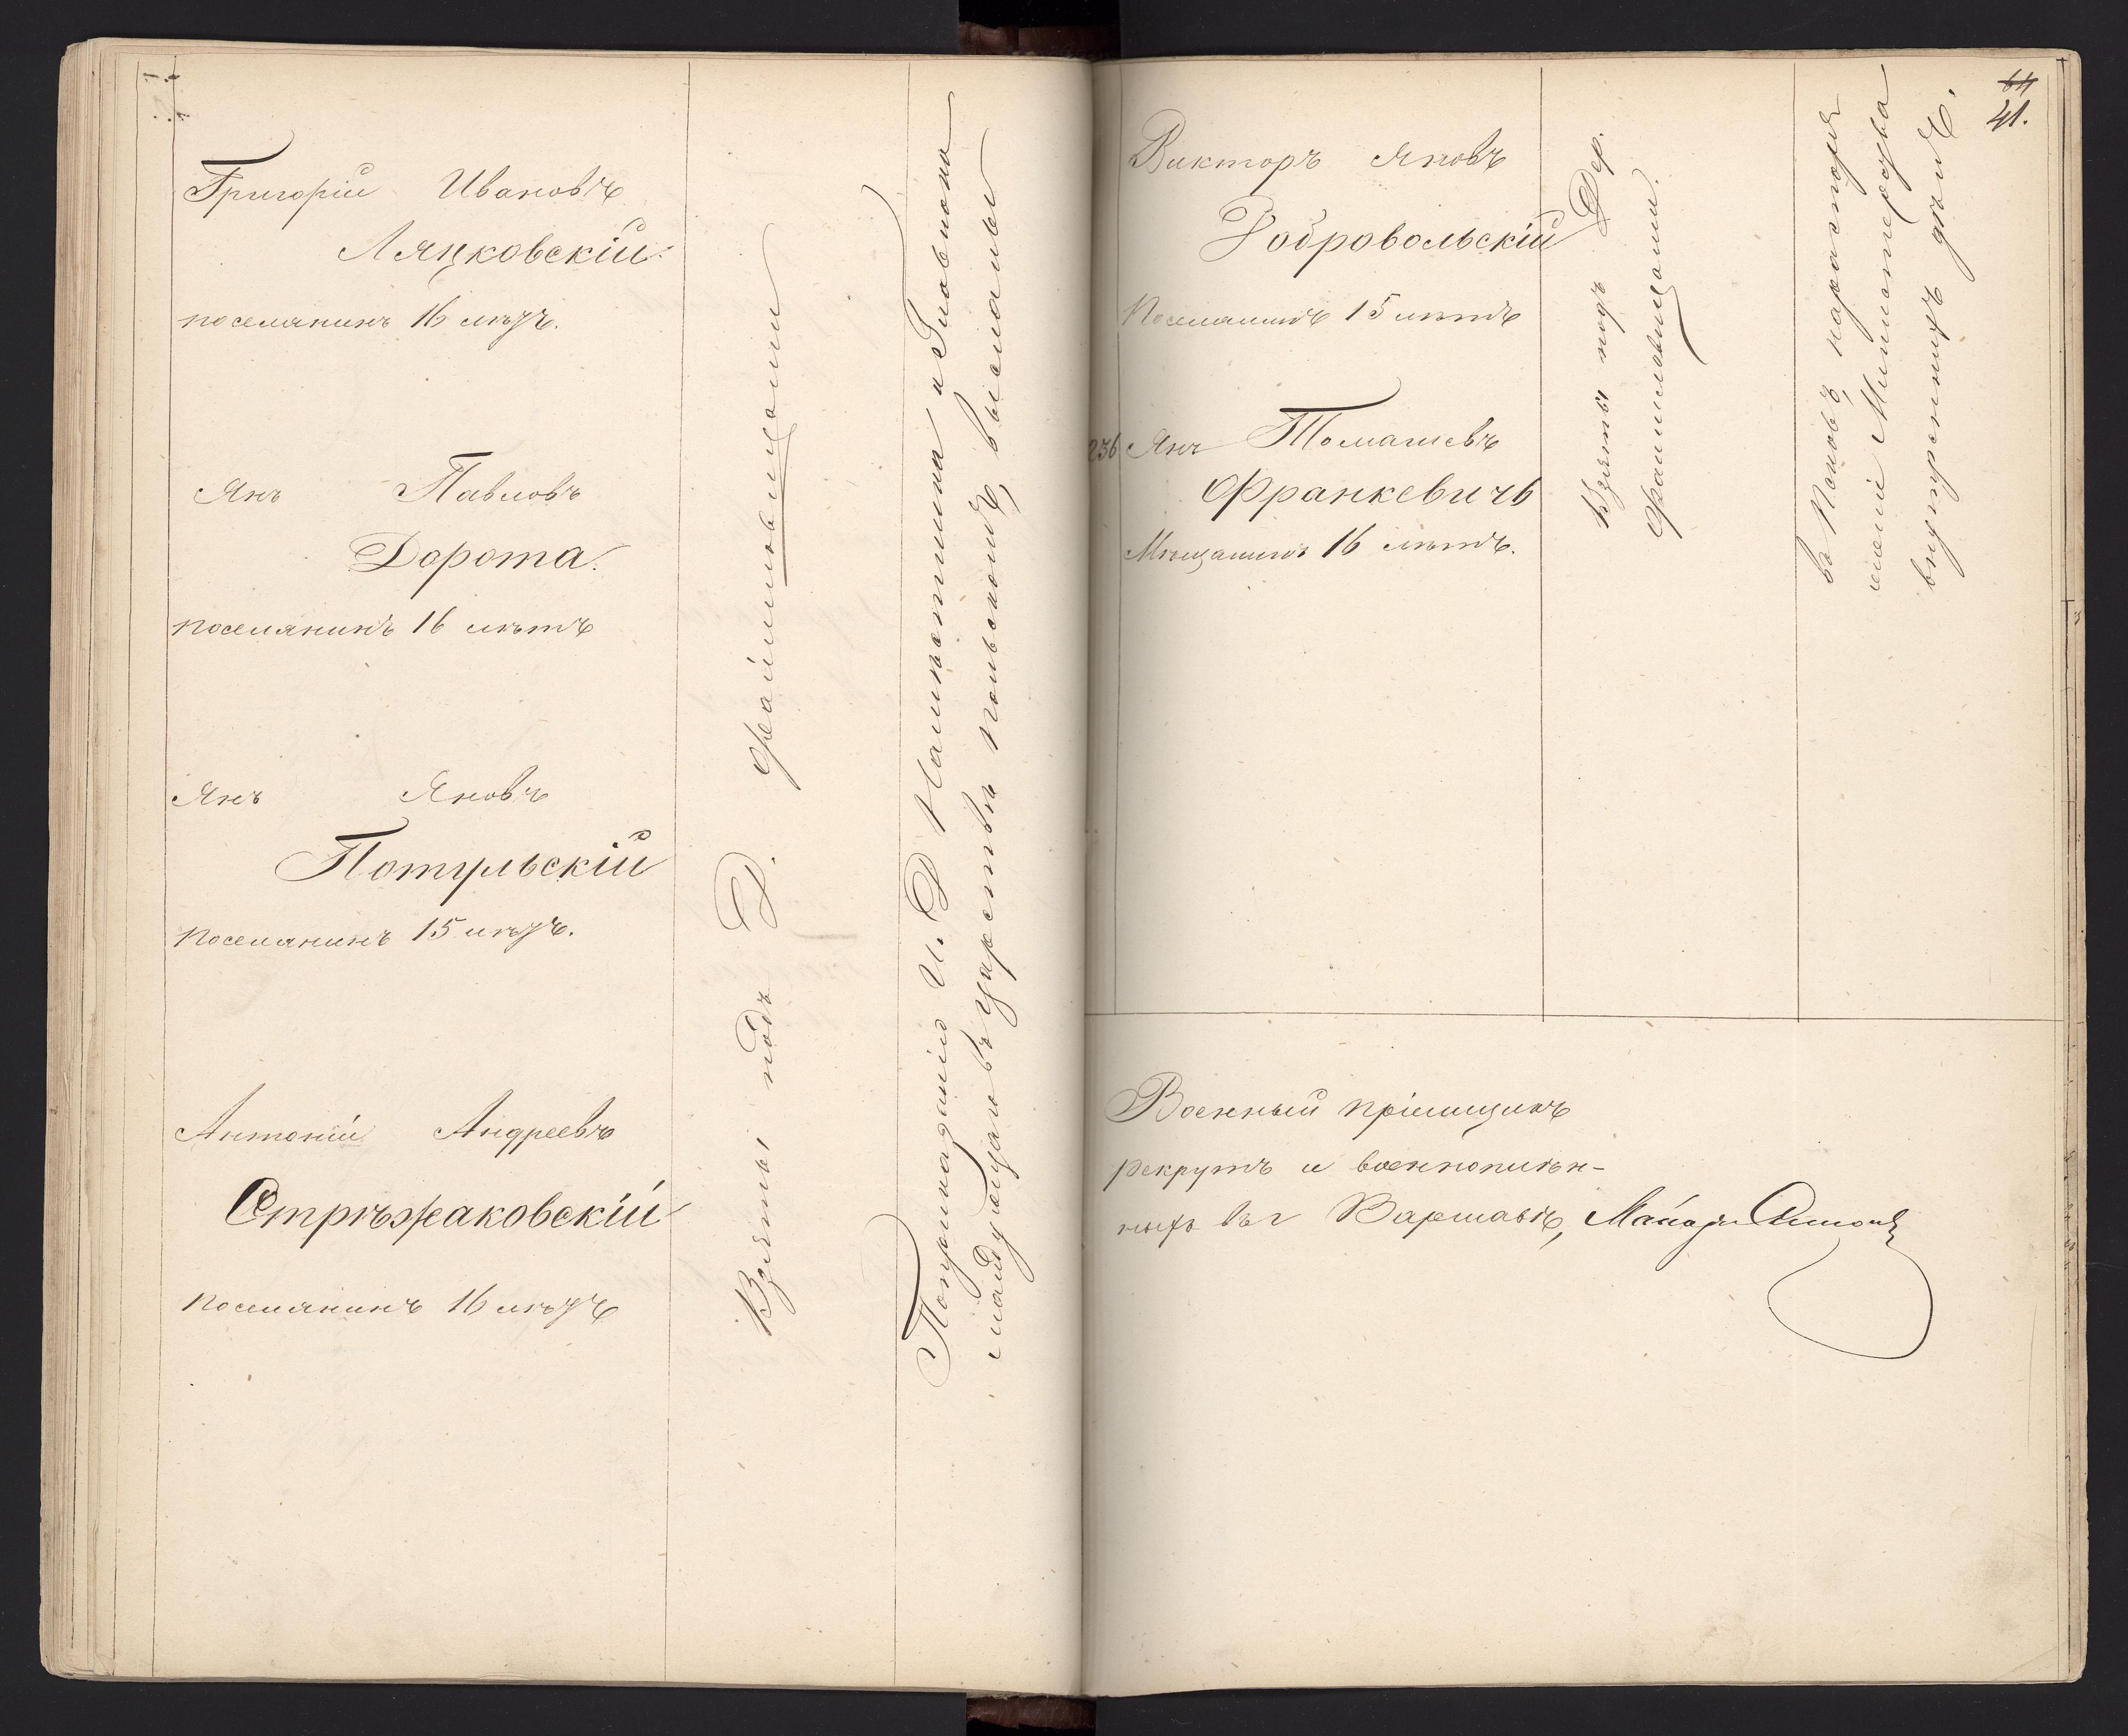 Григорій Ивановъ
Ляцковскій
поселянинъ 16 лѣтъ.
Янъ Павловъ
Дорота.
поселянинъ 16 лѣтъ
Янъ Яновъ
Потульскій
поселянинъ 15 лѣтъ.
Антоній Андреевъ
Стрѣжаковскій
поселянинъ 16 лѣтъ
Взяты подъ Д.
По приказанію И. Д. Намѣстника и Главноко-
мандующаго въ царствѣ польскомъ, высланы
64
41.
Викторъ Яновъ
Добровольскій
Поселянинъ 15 лѣтъ
236 Янъ Томашевъ
Франкевичъ
Мѣщанинъ 16 лѣтъ.
Взяты подъ Дер.
въ Псковъ,
Министерства
внутреннихъ дѣлъ.
Военный пріемщикъ
рекрутъ и военноплѣн-
ныхъ въ г Варшавѣ, Маіоръ